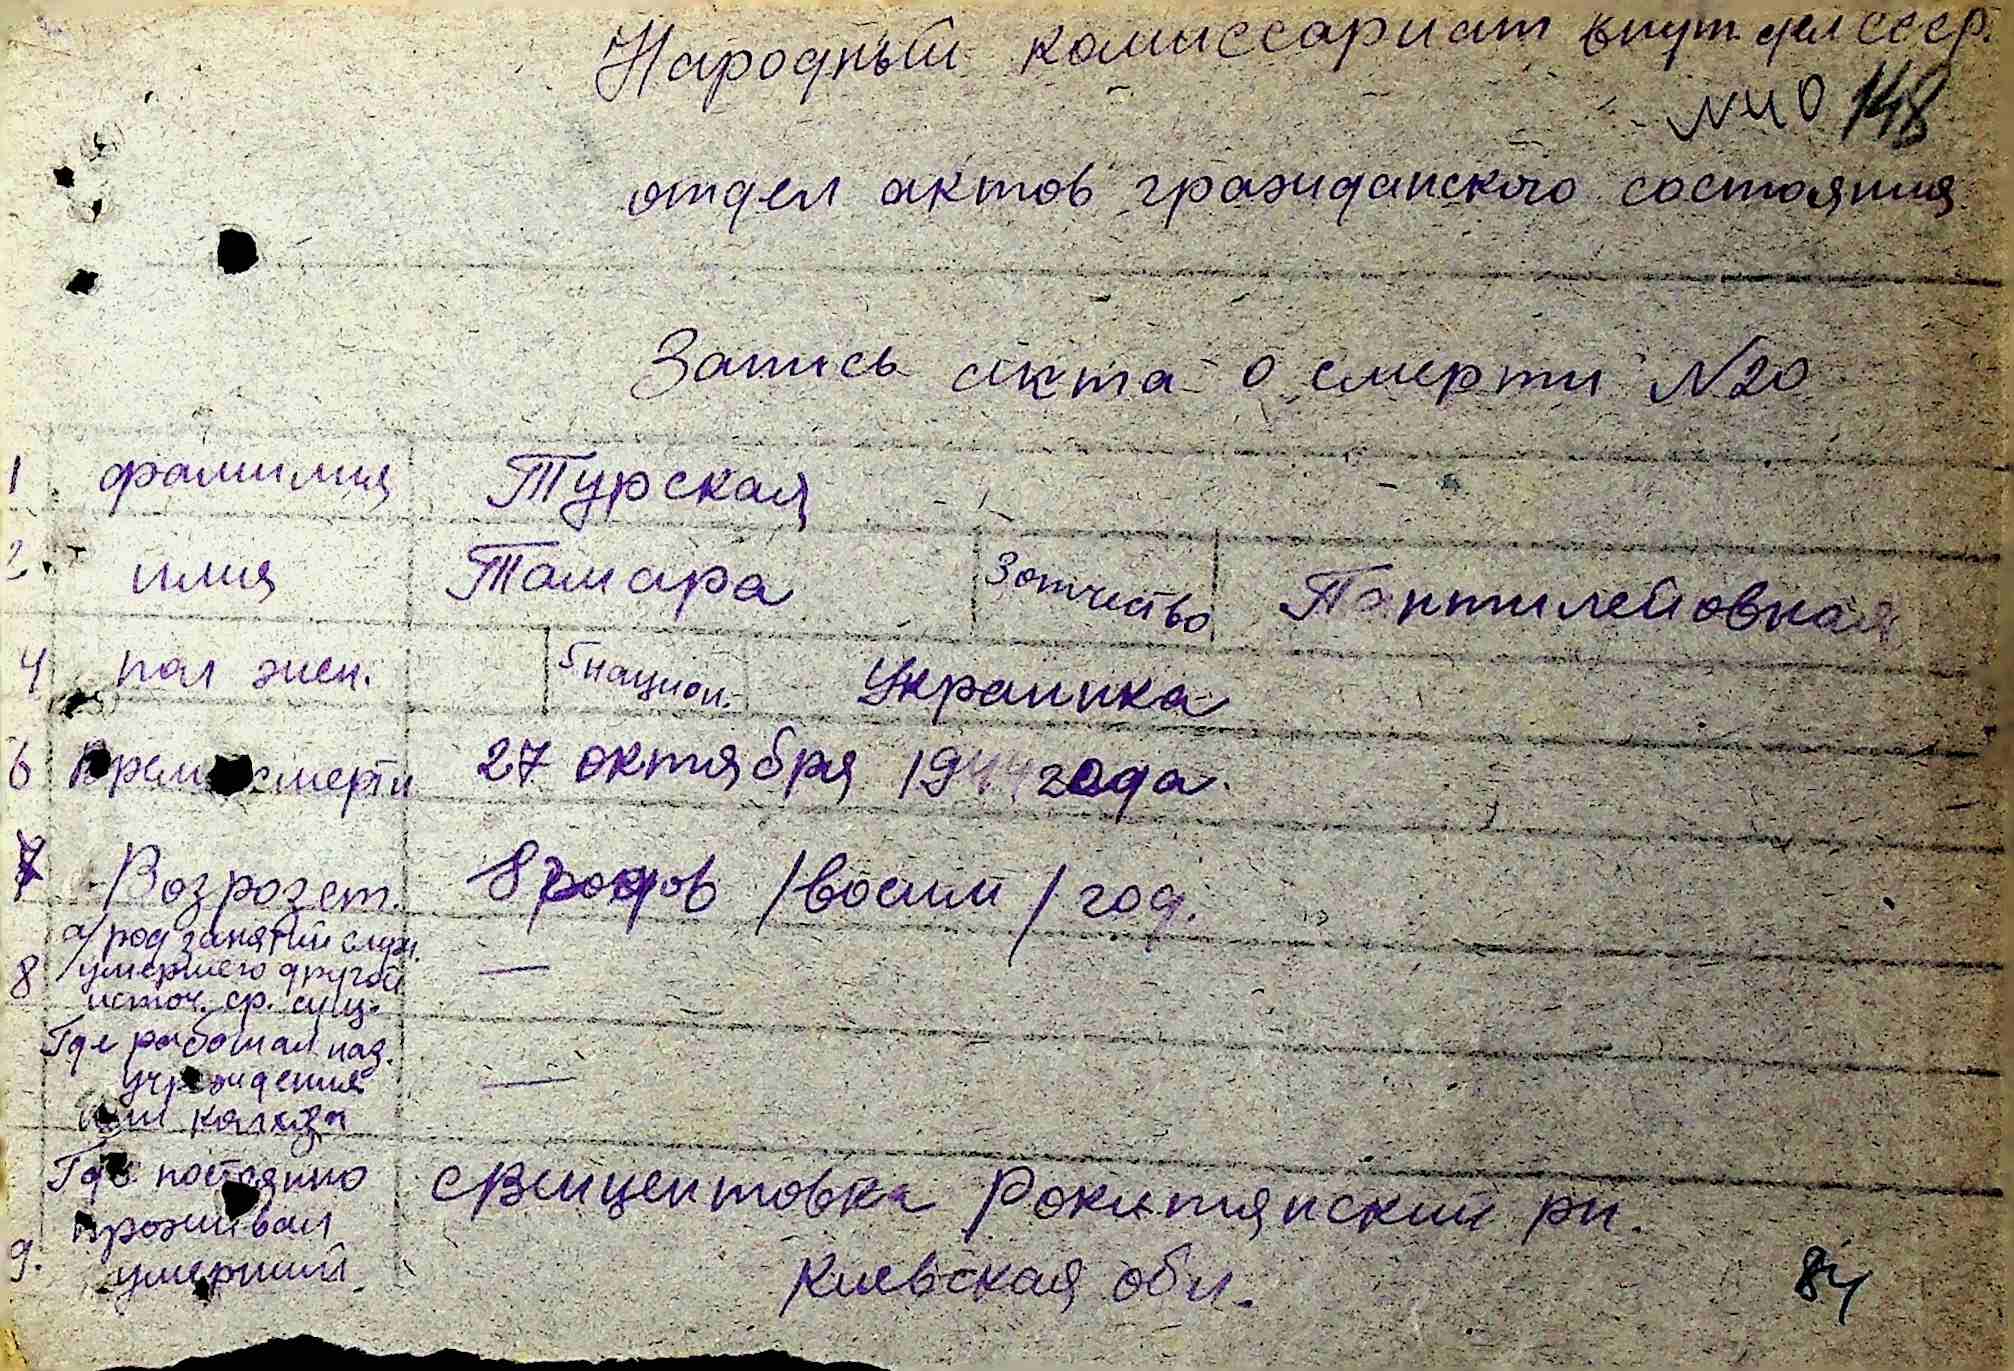 Народный комиссариат внут дел СССР.
148
отдел актов гражданского состояния
Запись акта о смерти №20
1 фамилия Турская
2 имия Тамара 3 отчество Пантилеиовная
4 пол жен. 5 национ. Украинка
6 Время смерти 27 октября 1944 года.
7 Возрозст. 8 родов /восим/ год.
а/ род занятий служ.
8 умершего другой —
источ. ср. сущ.
Где работал наз.
учреждения —
или калхза
Где постоянно свинцентовка Рокитянский рн.
проживал
9. умерший Киевская обл.
84